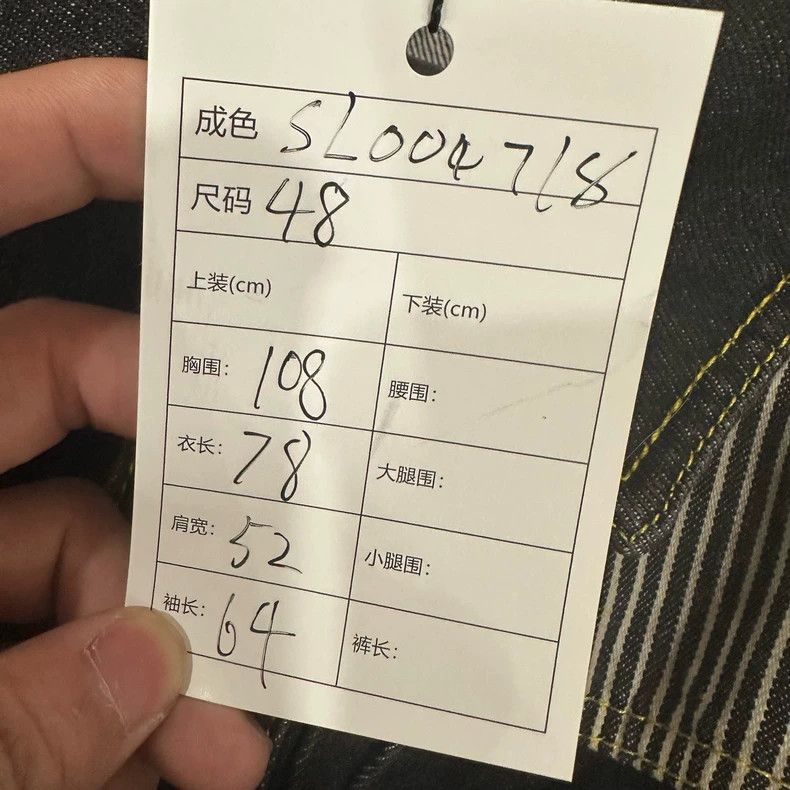 成色 SL004718
尺码 48
上装(cm) 下装(cm)
胸围: 108 腰围:
衣长: 78 大腿围:
肩宽: 52 小腿围:
袖长: 64 裤长: